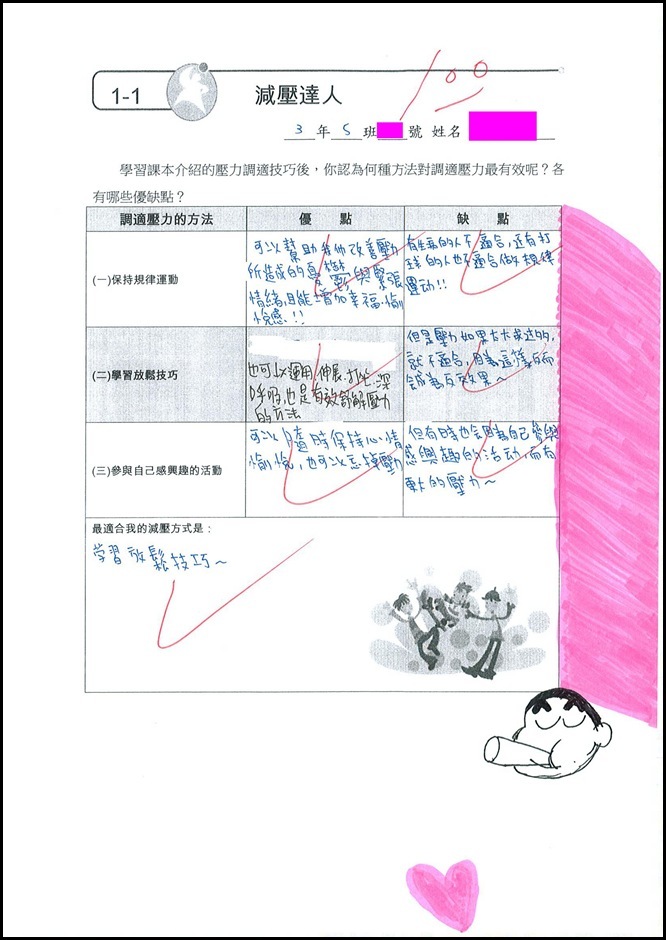 100
1-1
減壓達人
3 年 5 班 號 姓名
學習課本介紹的壓力調適技巧後，你認為何種方法對調適壓力最有效呢？各
有哪些優缺點？
調適壓力的方法 優 點 缺 點
(一)保持規律運動
可以幫助我們改善壓力
所造成的憂鬱與緊張
情緒,且能增加幸福.愉
悅感!!
有生病的人不適合,還有打
球的人也不適合做規律
運動!!
(二)學習放鬆技巧
也可以運用,伸展.打坐.深
呼吸,也是有效舒解壓力
的方法
但是壓力如果太大來過的,
就不適合,因為這樣
有效果~
(三)參與自己感興趣的活動
可以隨時保持心情
愉悅,也可以忘掉壓力
但有時也會因為自己覺得
感興趣的活動,而有
的壓力~
最適合我的減壓方式是：
學習放鬆技巧~